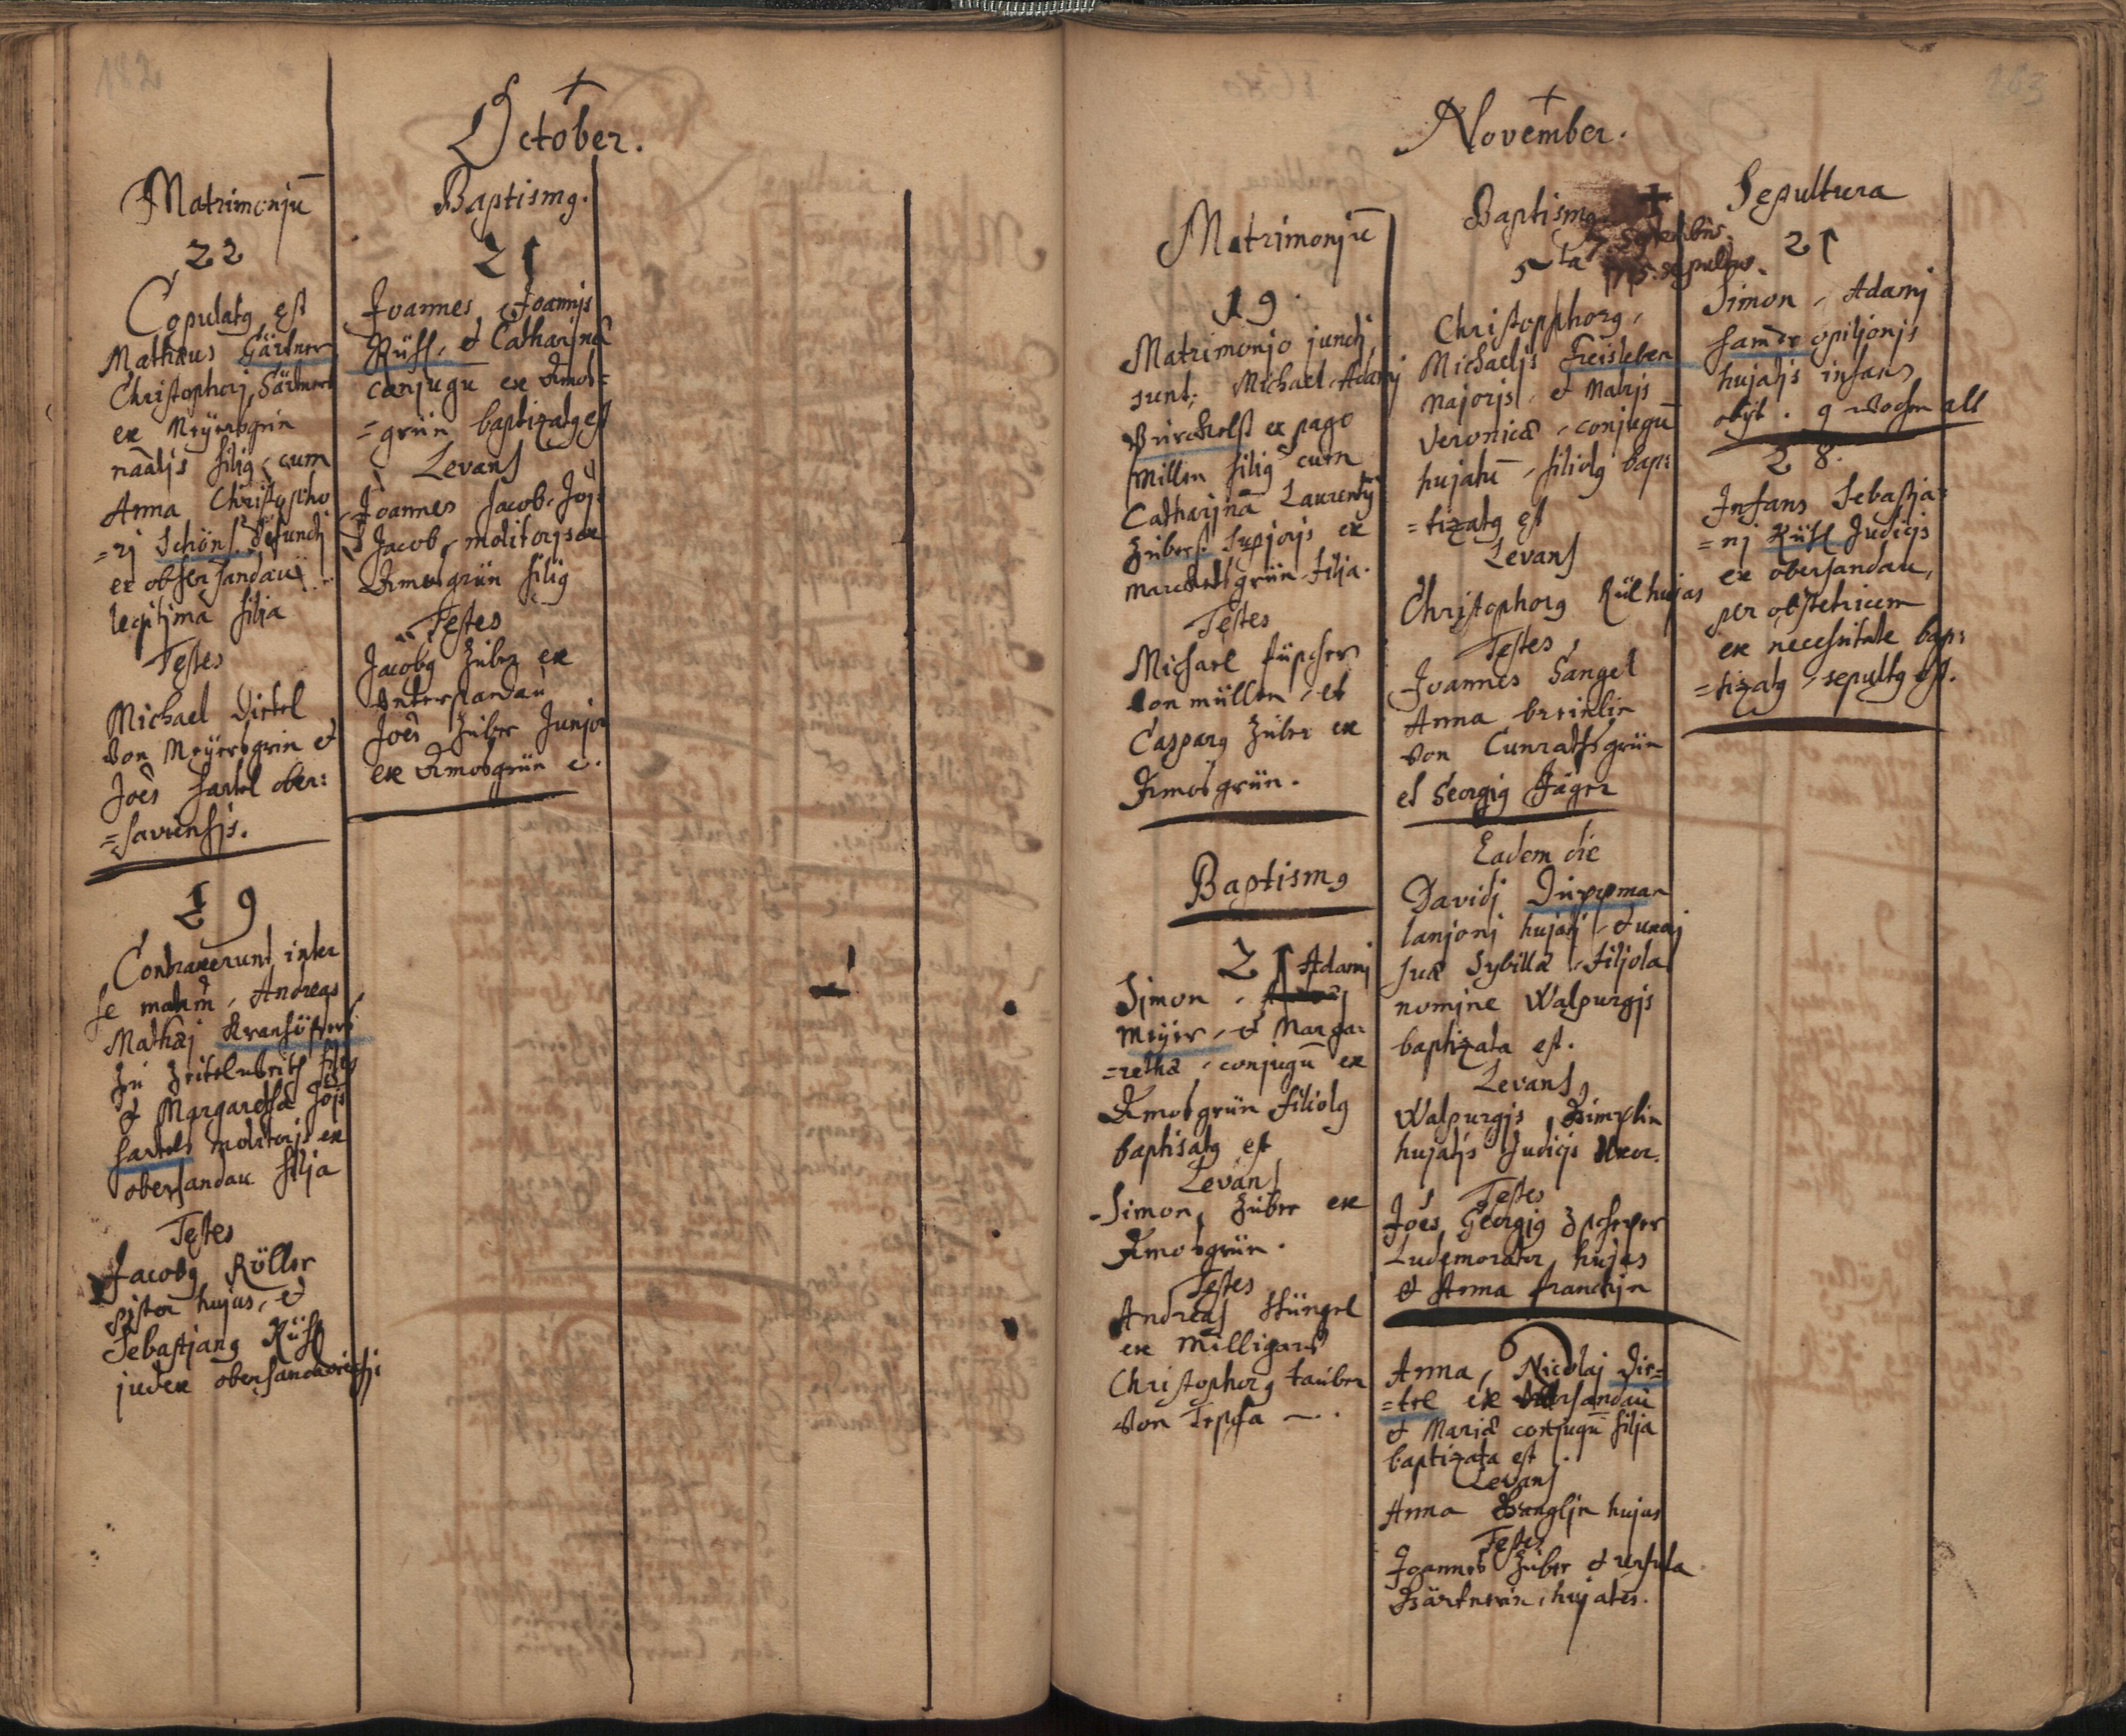 182
October.
Matrimonjū
22
Copulatg est
Mathæus Gärtner
Christophorj Gärtners
ex Meÿersgrin
naãljs filig, cum
Anna Christopho
=rj Schöns defunctj
ex obersandau
legitjma filja
Testes
Michael Dietel
von Meÿersgrin et
Joês Hartel ober:
=saviensjs.
19
Contraxerunt inter
se matrm, Andreas
Mathæj
zu
et Margaretha Jôjs
Hartels molitorjs ex
obersandau filja
Testes
Jacobg Köller
pistor hujus, et
Sebastjang Rühl
judex
Baptismg.
21
Joannes, Joannjs
Rühl, et Catharjnâ
conjugu ex Amos=
=grün baptizatg est
Levans
Joannes Jacob, Jôjs
Jacob, molitorjs ex
Amosgrün filig
Testes
Jacobg Zuber ex
Untersandau
Joês Zuber Junjor
ex Amosgrün
183
November.
Matrimonjū
19
Matrimonjo junctj
sunt, Michael Adamj
ex pago
Millen filig cum
Catharjnâ Laurentij
Zubers supjorjs ex
Marckhetsgrün filja.
Testes
Michael
von müllen, et
Casparg Zuber ex
Amosgrün.
Baptismg
21
Adamj
Simon,
Meÿer, et Marga:
=rethæ, conjugū ex
Amosgrün filiolg
baptisatg est
Levans
Simon Zuber ex
Amosgrün.
Testes
Andreas Stüngel
ex Milligau
Christophorg tauber
von Tepsa
Baptismg
5ta
Christopphorg,
Michaeljs Freisleben
Majorjs, et Matrjs
Veronicâ, conjugū
hujatū, filiolg bap:
=tizatg est
Levans
Christophorg Rül hujas
Testes
Joannes Sangel
Anna breinlin
von Cunradtsgrün
et Georgig Jäger
Eadem die
Davidj Düppman
lanjonj hujatj, et uxorj
suæ Sybillæ, filjola
nomjne Walpurgjs
baptizata est.
Levans
Walpurgjs Zimplin
hujatjs Judicjs Uxor.
Testes
Joês Georgig
Ludemorator hujas
et Anna Franckjn
Anna, Nicolaj Die=
=tel ex Obersandau
et Mariâ conjugū filja
baptizata est
Levans
Anna hujas
Testes
Joannes Zuber et Ursula
Gärtnerin, hujates.
Sepultura
21
Simon, Adamj
opiljonjs
hujatjs infans
obijt. 9 wochen alt
28.
Infans Sebastja=
=nj Rühl Judicjs
ex obersandau,
per obstetricem
ex necessitate bap:
=tizatg, sepultg est.